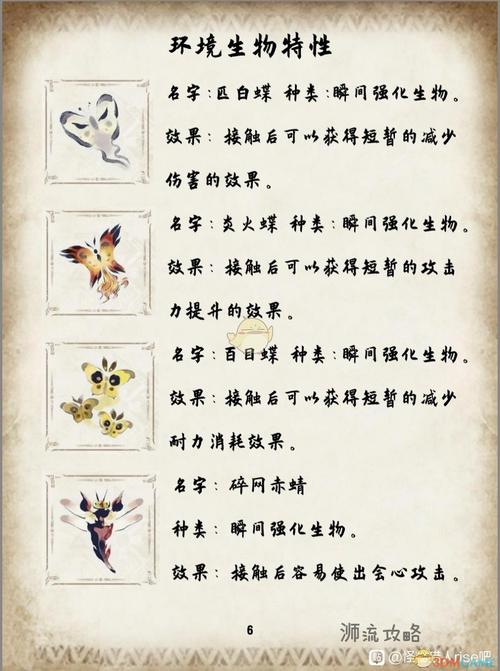 环境生物特性
名字:匹白蝶 种类:瞬间强化生物。
效果: 接触后可以获得短暂的减少
伤害的效果。
名字:炎火蝶 种类:瞬间强化生物。
效果: 接触后可以获得短暂的攻击
力提升的效果。
名字:百目蝶 种类:瞬间强化生物。
效果: 接触后可以获得短暂的减少
耐力消耗效果。
名字: 碎网赤蜻
种类: 瞬间强化生物。
效果: 接触后容易使出会心攻击。
6
浉流攻略
3DMGAME